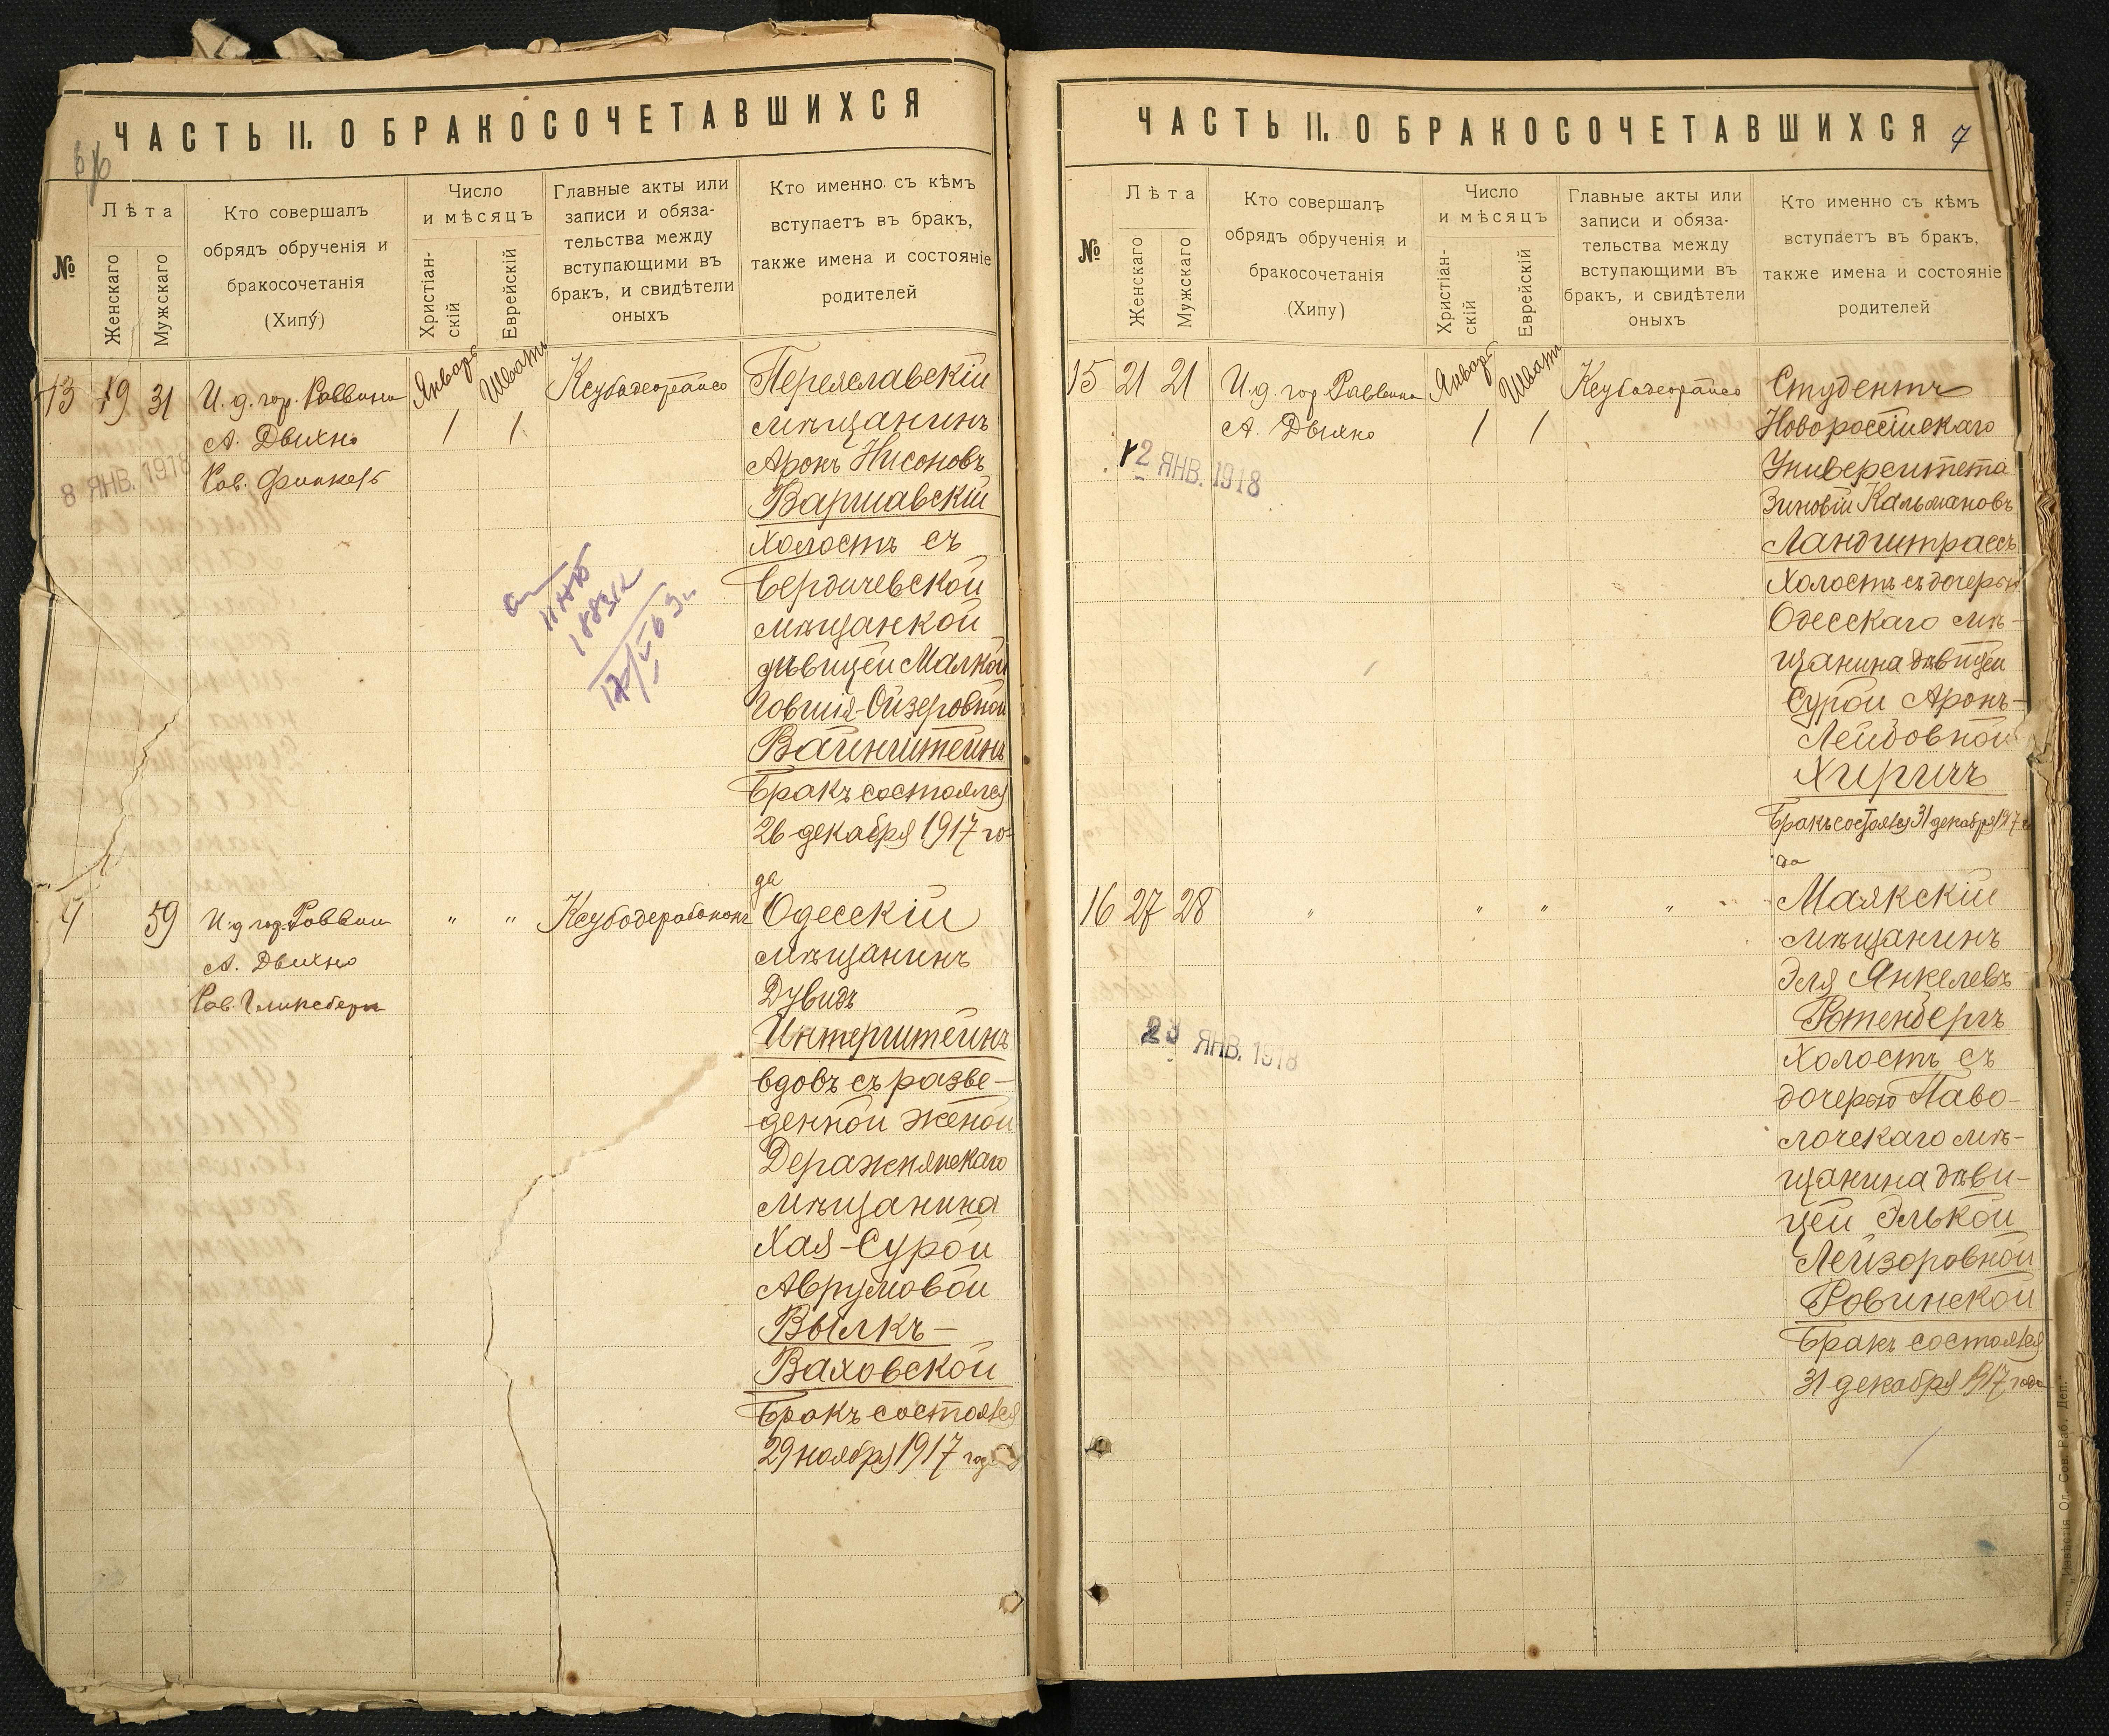 ЧАСТЬ II. О БРАКОСОЧЕТАВШИХСЯ
№
Лѣта
Женскаго
Мужскаго
Кто совершалъ
обрядъ обрученія и
бракосочетанія
(Хипу)
Число
и мѣсяцъ
Христіан-
скій
Еврейскій
Главные акты или
записи и обяза-
тельства между
вступающими въ
бракъ, и свидѣтели
оныхъ
Кто именно съ кѣмъ
вступаетъ въ бракъ,
также имена и состояніе
родителей
13 19 31
И. д. гор. Раввина
А. Двихно
Рав. Финкель
Январь
1
Шватъ
1
8 ЯНВ. 1918
Переяславскій
мѣщанинъ
Аронъ Нисоновъ
Варшавскій
холостъ съ
Бердичевской
мѣщанкой
дѣвицей Малкой
Говшія-Ойзеровной
Вайнштейнъ
Бракъ состоялся
26 декабря 1917 го-
да
59
И. д. гор. Раввин
А. Двихно
Рав. Гликсберг
" "
Одесскій
мѣщанинъ
Дувидъ
Интерштейнъ
вдовъ съ разве-
денной женой
Деражнянскаго
мѣщанина
Хая-Сурой
Аврумовой
Вылкъ-
Ваховской
Бракъ состоялся
29 ноября 1917 год
ЧАСТЬ II. О БРАКОСОЧЕТАВШИХСЯ
7
№
Лѣта
Женскаго
Мужскаго
Кто совершалъ
обрядъ обрученія и
бракосочетанія
(Хипу)
Число
и мѣсяцъ
Христіан-
скій
Еврейскій
Главные акты или
записи и обяза-
тельства между
вступающими въ
бракъ, и свидѣтели
оныхъ
Кто именно съ кѣмъ
вступаетъ въ бракъ,
также имена и состояніе
родителей
15 21 21
И. д. гор. Раввина
А. Двихно
Январь
1
Шватъ
1
12 ЯНВ. 1918
Студентъ
Новороссійскаго
Университета
Зиновій Кальмановъ
Ландштрассъ
холостъ съ дочерью
Одесскаго мѣ-
щанина дѣвицей
Сурой Аронъ-
Лейбовной
Хиричъ
Бракъ состоялся 31 декабря 1917 го
да
16 27 28
" " " "
23 ЯНВ. 1918
Маякскій
мѣщанинъ
Эля Янкелевъ
Ротенбергъ
холостъ съ
дочерью Паво-
лочскаго мѣ-
щанина дѣви-
цей Элькой
Лейзоровной
Ровинской
Бракъ состоялся
31 декабря 1917 года
"Извѣстія Од. Сов. Раб. Деп."